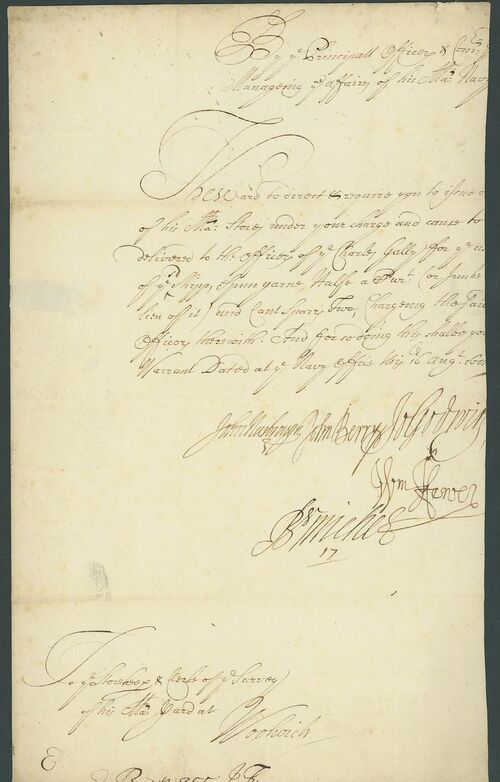 By ye Principall Officers & Com
Managing ye affaires of his Mats Navy
These are to direct & require you to issue
of his Mats Stores under your charge and cause to
delivered to the Officers of ye Charles Gally for ye u
of ye Shipp, Spun yarne Halfe a
lieu of it) and Cant Sparrs Two, Chargeing the said
Officers therewith. And for so doing this shalbe you
Warrant Dated at ye Navy Office this 16 Augt. 168
John Narbrough John Berry Jo Godwin
Wm Hewer
B St Michel
17
To ye Storekeepr & Clerk of ye Survey
of his Mats Yard at
Woolwich